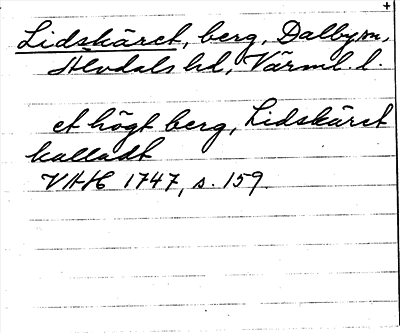 +
Lidskäret, berg, Dalby sn,
Älvdals hd, Värml. l.
et högt berg, Lidskäret
kalladt
VAH 1747, s. 159.